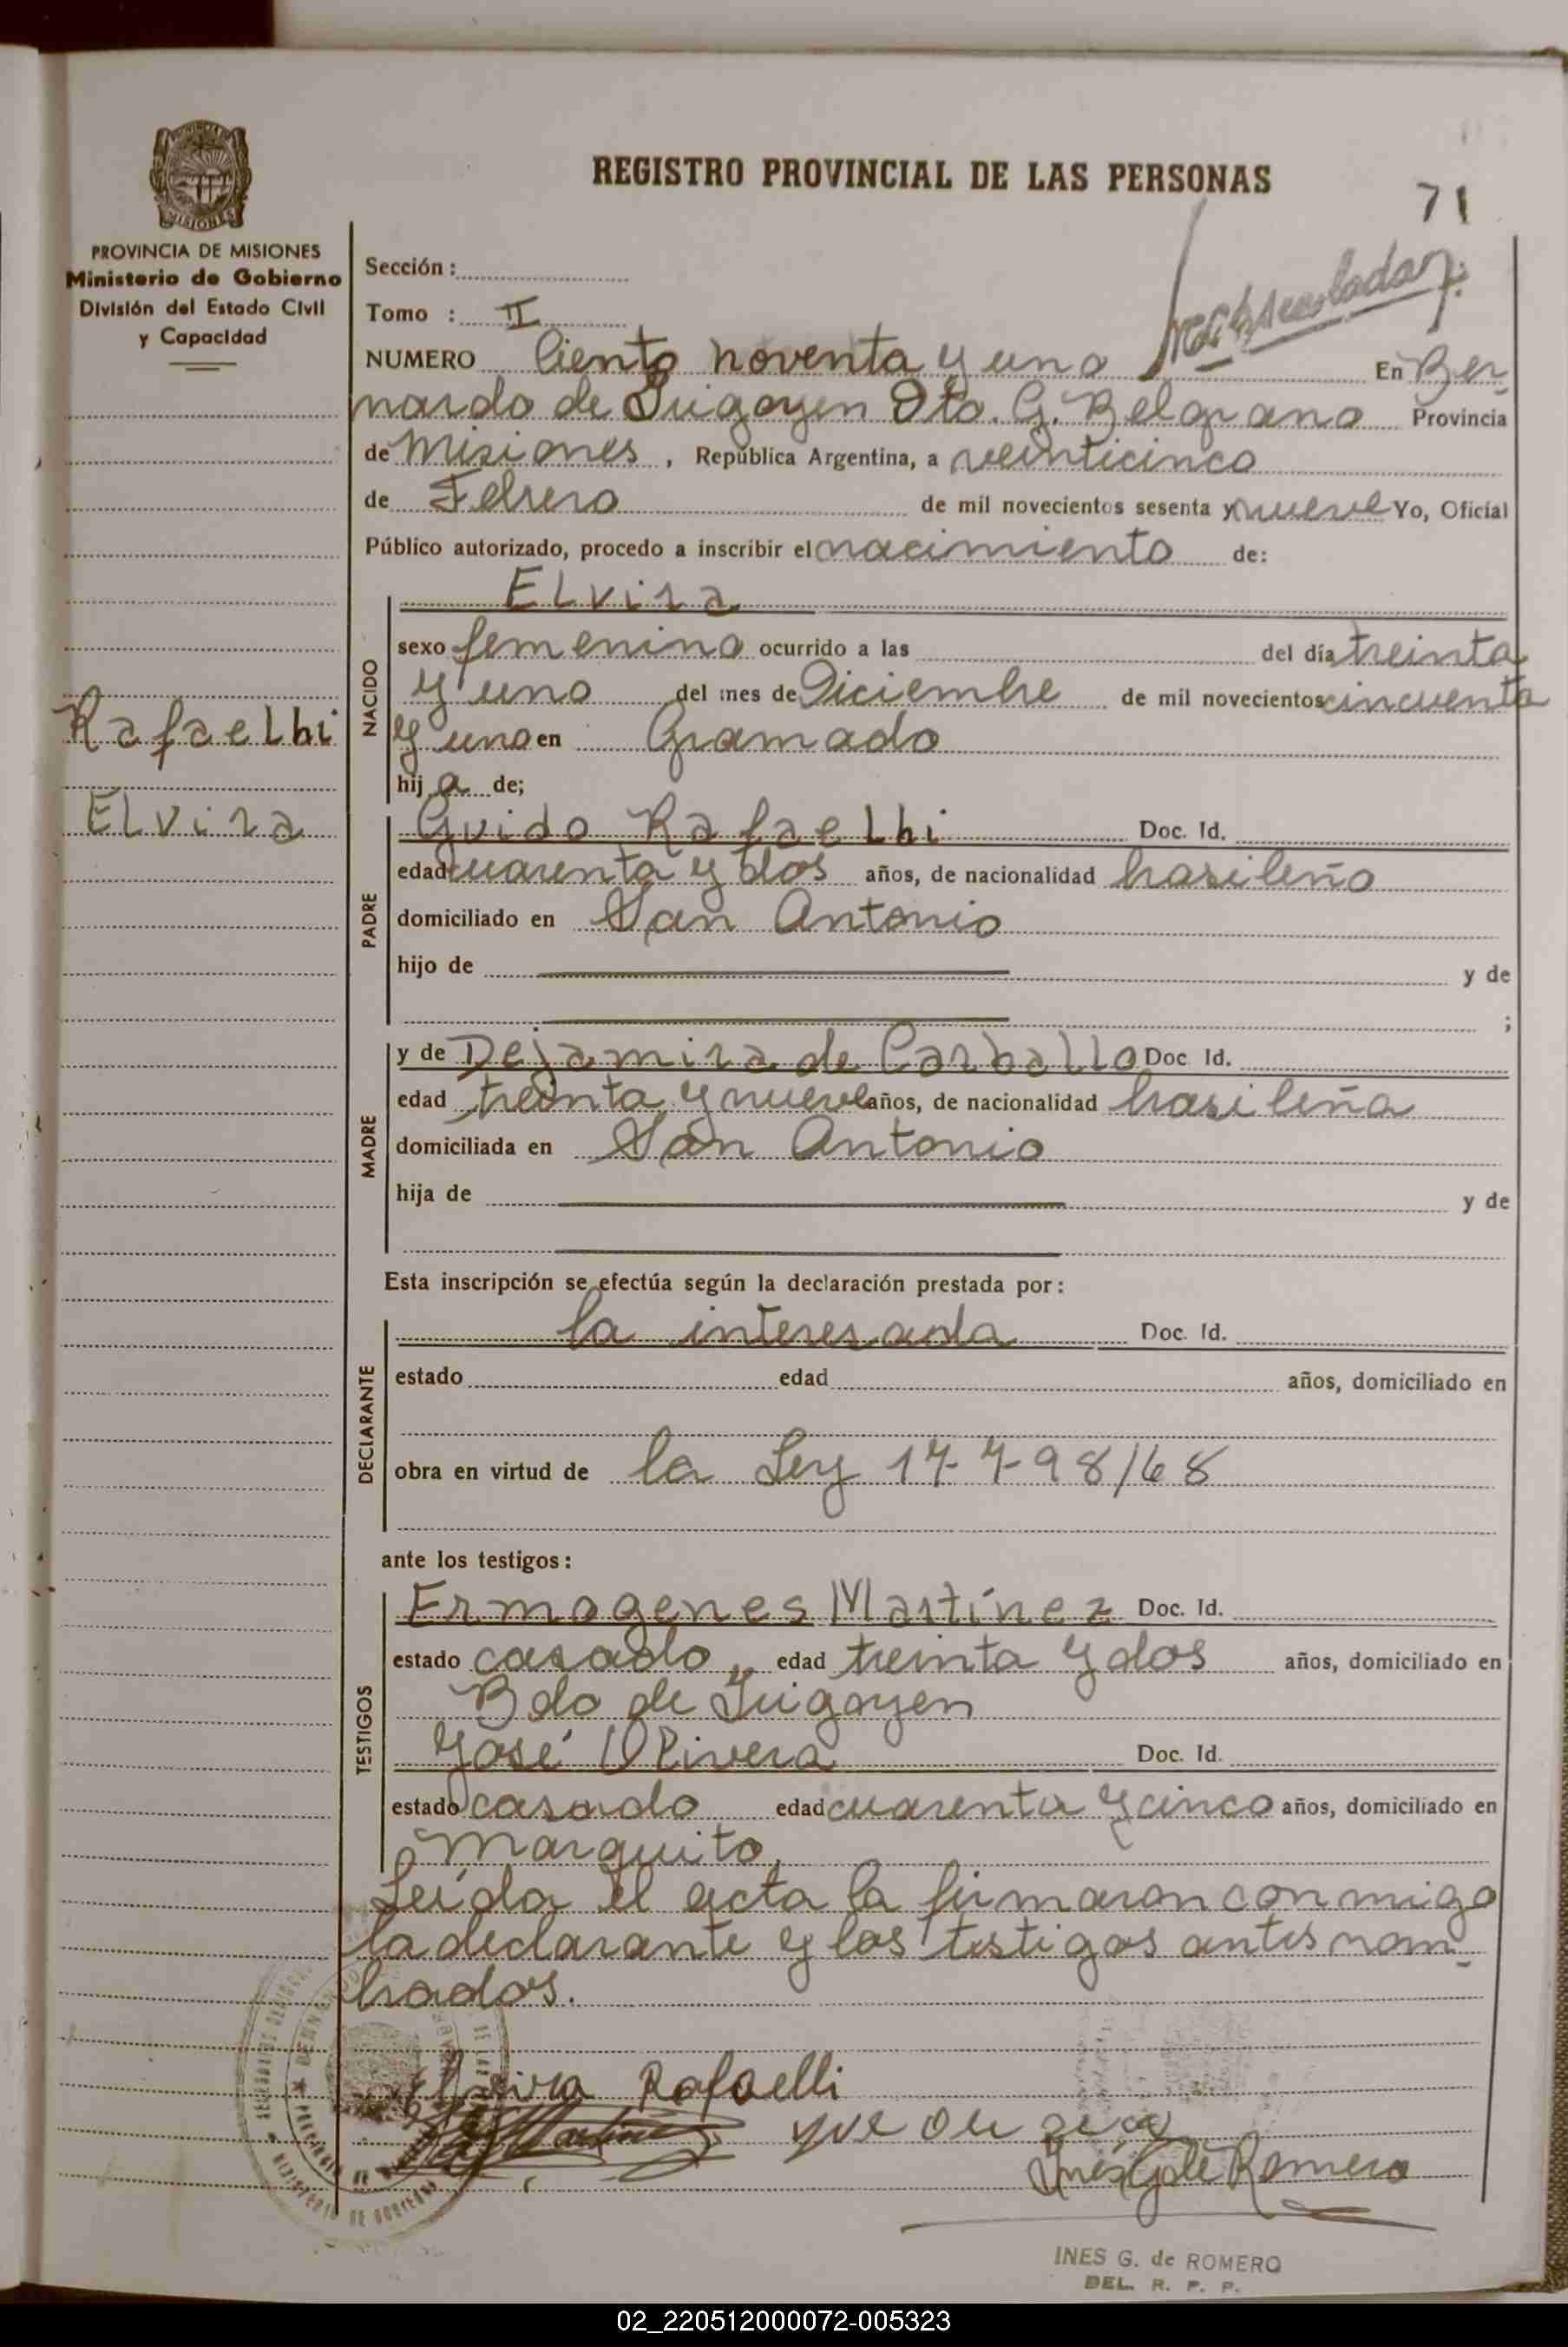 REGISTRO PROVINCIAL DE LAS PERSONAS
71
PROVINCIA DE MISIONES
Ministerio de Gobierno
División del Estado Civil
y Capacidad
Sección :
Tomo : II
NUMERO Ciento noventa y uno En Ber-
nardo de Irigoyen Dto. G. Belgrano Provincia
de Misiones , República Argentina, a veinticinco
de Febrero de mil novecientos sesenta y nueve Yo, Oficial
Público autorizado, procedo a inscribir el nacimiento de:
NACIDO
Elvira
sexo femenino ocurrido a las del día treinta
y uno del mes de Diciembre de mil novecientos cincuenta
y uno en Gramado
hij a de;
Rafaelhi
Elvira
PADRE
Guido Rafaelhi Doc. Id.
edad cuarenta y dos años, de nacionalidad brasileño
domiciliado en San Antonio
hijo de y de
;
MADRE
y de Dejamira de Carballo Doc Id.
edad treinta y nueve años, de nacionalidad brasileña
domiciliada en San Antonio
hija de y de
Esta inscripción se efectúa según la declaración prestada por :
DECLARANTE
la interesada Doc. Id.
estado edad años, domiciliado en
obra en virtud de la Ley 17798/68
ante los testigos :
TESTIGOS
Ermogenes Martínez Doc. Id.
estado casado edad treinta y dos años, domiciliado en
Bdo de Irigoyen
José Olivera Doc. Id.
estado casado edad cuarenta y cinco años, domiciliado en
Marquito,
Leída el acta la firmaron conmigo
la declarante y los testigos antes nom-
brados.
Elvira Rafaelli
Martinez
Inés G de Romero
INES G. de ROMERO
DEL. R. P. P.
02_220512000072-005323